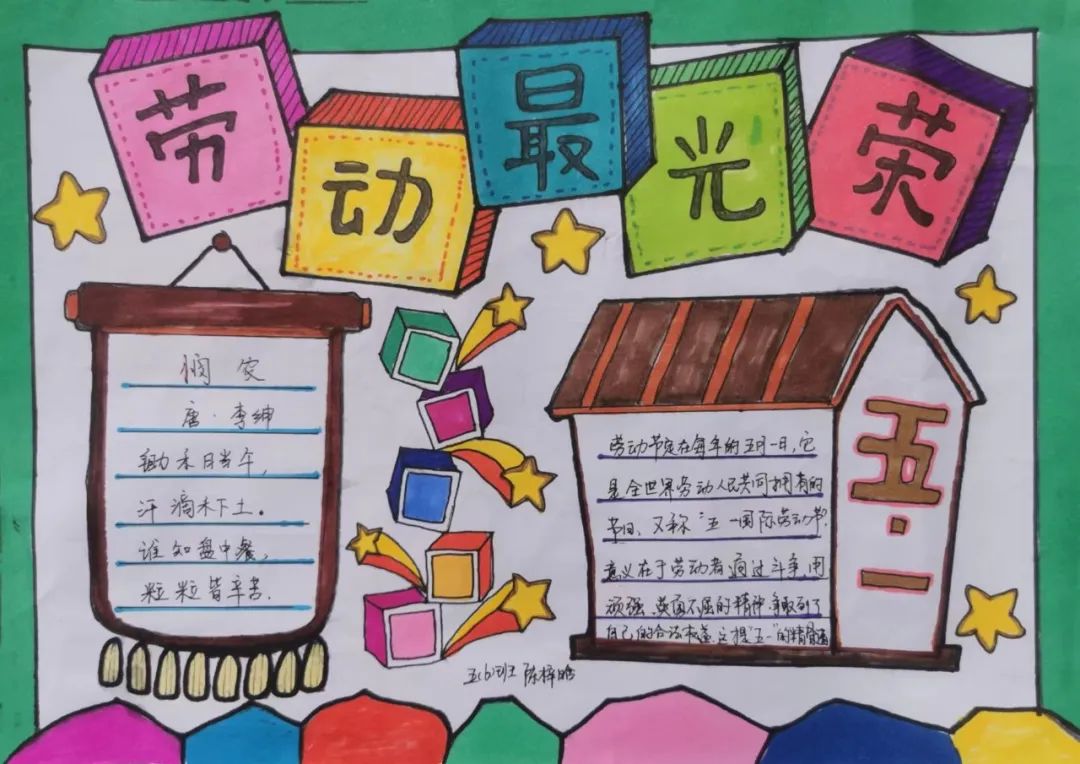 劳动最光荣
悯农
唐·李绅
锄禾日当午,
汗滴禾下土。
谁知盘中餐,
粒粒皆辛苦.
劳动节定在每年的五月一日,它
是全世界劳动人民共同拥有的
节日、又称“五一国际劳动节”.
意义在于劳动者通过斗争,用
顽强、英勇不屈的精神,争取到了
自己的合法权益.这是“五一”的精
五·一
五(6)班 陈梓晗